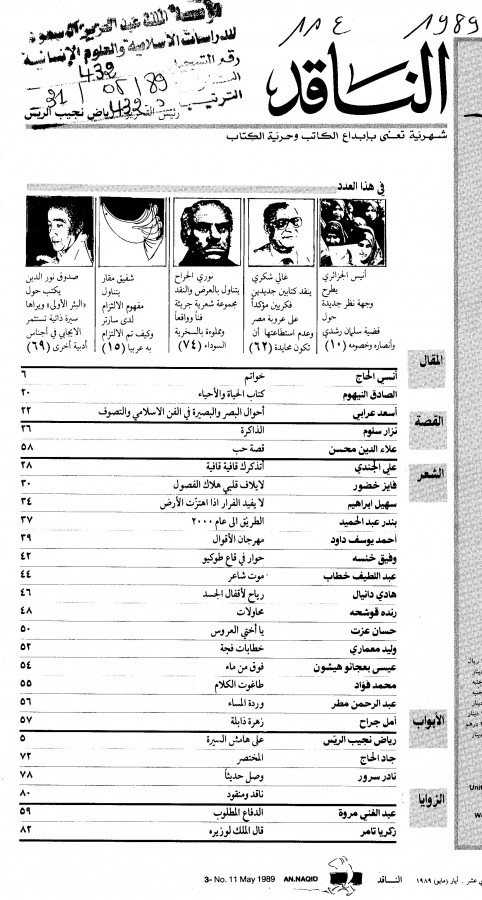 ١١٤ ١٩٨٩
مؤسسة الملك عبد العزيز آل سعود
للدراسات الإسلامية والعلوم الإنسانية
رقم التسجيل 432
31 / 05 / 89
الترتيب 432
الناقد
رئيس التحرير: رياض نجيب الريّس
شهرية تعنى بإبداع الكاتب وحرية الكتاب
في هذا العدد
أنيس الجزائري
يطرح
وجهة نظر جديدة
حول
قضية سلمان رشدي
وأنصاره وخصومه (١٠)
غالي شكري
ينقد كتابين جديدين
فكريين مؤكداً
على عروبة مصر
وعدم استطاعتها أن
تكون محايدة (٦٢)
نوري الجراح
يتناول بالعرض والنقد
مجموعة شعرية جريئة
فناً وواقعاً
ومملوءة بالسخرية
السوداء (٧٤)
شفيق مقار
يتناول
مفهوم الالتزام
لدى سارتر
وكيف تم الالتزام
به عربياً (١٥)
صدوق نور الدين
يكتب حول
«البئر الأولى» ويراها
سيرة ذاتية تستثمر
الايجابي في أجناس
أدبية أخرى (٦٩)
المقال
أنسي الحاج خواتم ٦
الصادق النيهوم كتاب الحياة والأحياء ٢٠
أسعد عرابي أحوال البصر والبصيرة في الفن الاسلامي والتصوف ٢٢
القصة
نزار سلوم الذاكرة ٢٦
علاء الدين محسن قصة حب ٥٨
الشعر
علي الجندي أتذكرك قافية قافية ٢٨
فايز خضور لايلاف قلبي هلاك الفصول ٣٠
سهيل ابراهيم لا يفيد الفرار اذا اهتزت الأرض ٣٤
بندر عبد الحميد الطريق الى عام ٢٠٠٠ ٣٧
أحمد يوسف داود مهرجان الأقوال ٣٩
وفيق خنسه حوار في قاع طوكيو ٤٢
عبد اللطيف خطاب موت شاعر ٤٤
هادي دانيال رياح لأقفال الجسد ٤٦
رنده قوشحه محاولات ٤٨
حسان عزت يا أختي العروس ٥٠
وليد معماري خطابات فجة ٥٢
عيسى بعجانو هيشون فوق من ماء ٥٤
محمد فؤاد طاغوت الكلام ٥٥
عبد الرحمن مطر وردة المساء ٥٦
أمل جراح زهرة ذابلة ٥٧
الأبواب
رياض نجيب الريّس على هامش السيرة ٥
جاد الحاج المختصر ٧٢
نادر سرور وصل حديثاً ٧٨
ناقد ومنقود ٨٠
الزوايا
عبد الغني مروة الدفاع المطلوب ٥٩
زكريا تامر قال الملك لوزيره ٨٢
3- No. 11 May 1989 AN.NAQID الناقد
ي عشر . أيار (مايو) ١٩٨٩